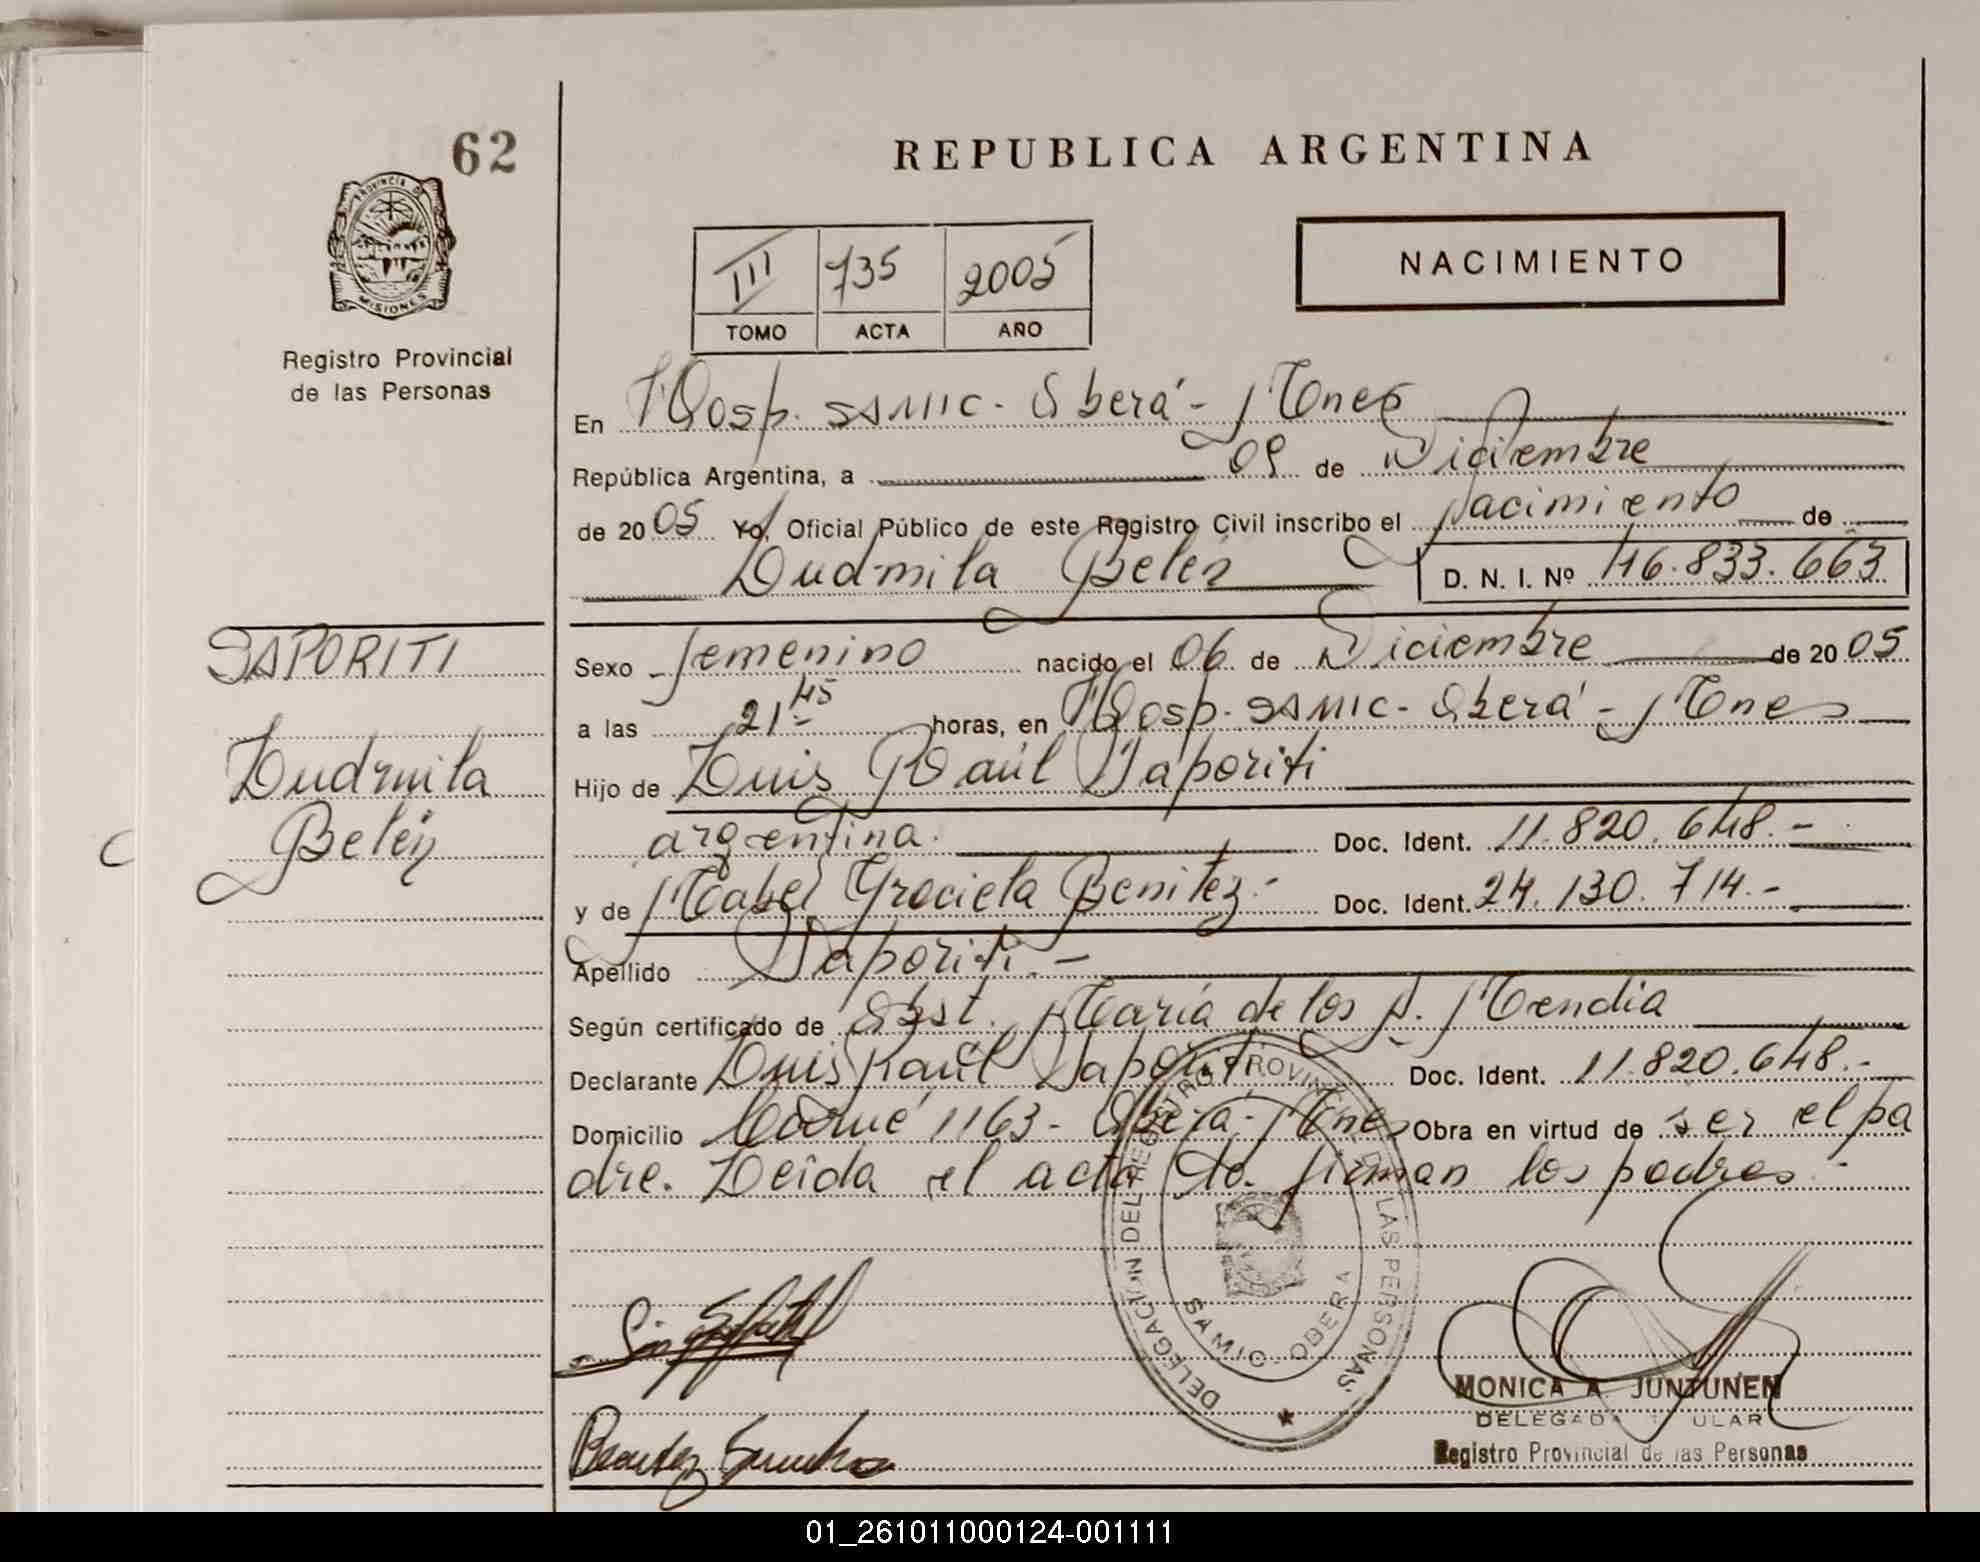 62
PROVINCIA DE
MISIONES
Registro Provincial
de las Personas
REPUBLICA ARGENTINA
NACIMIENTO
III 735 2005
TOMO ACTA AÑO
En Hosp. SAMIC - Oberá - Mnes
República Argentina, a 09 de Diciembre
de 2005 Yo, Oficial Público de este Registro Civil inscribo el Nacimiento de
Ludmila Belén D. N. I. Nº 46.833.663
SAPORITI
Ludmila
Belén
Sexo femenino nacido el 06 de Diciembre de 2005
a las 21 45 horas, en Hosp. SAMIC - Oberá - Mnes
Hijo de Luis Raúl Saporiti
argentina. Doc. Ident. 11.820.648.-
y de Mabel Graciela Benitez.- Doc. Ident. 24.130.714.-
Apellido Saporiti.-
Según certificado de Obst. María de los A. Mendia
Declarante Luis Raúl Saporiti Doc. Ident. 11.820.648.-
Domicilio 1163 - Oberá - Mnes Obra en virtud de ser el pa
dre. Leída el acta la firman los padres.-
DELEGACION DEL REGISTRO PROVINCIAL DE LAS PERSONAS
SAMIC - OBERA
MONICA A. JUNTUNEN
DELEGADA TITULAR
Registro Provincial de las Personas
01_261011000124-001111